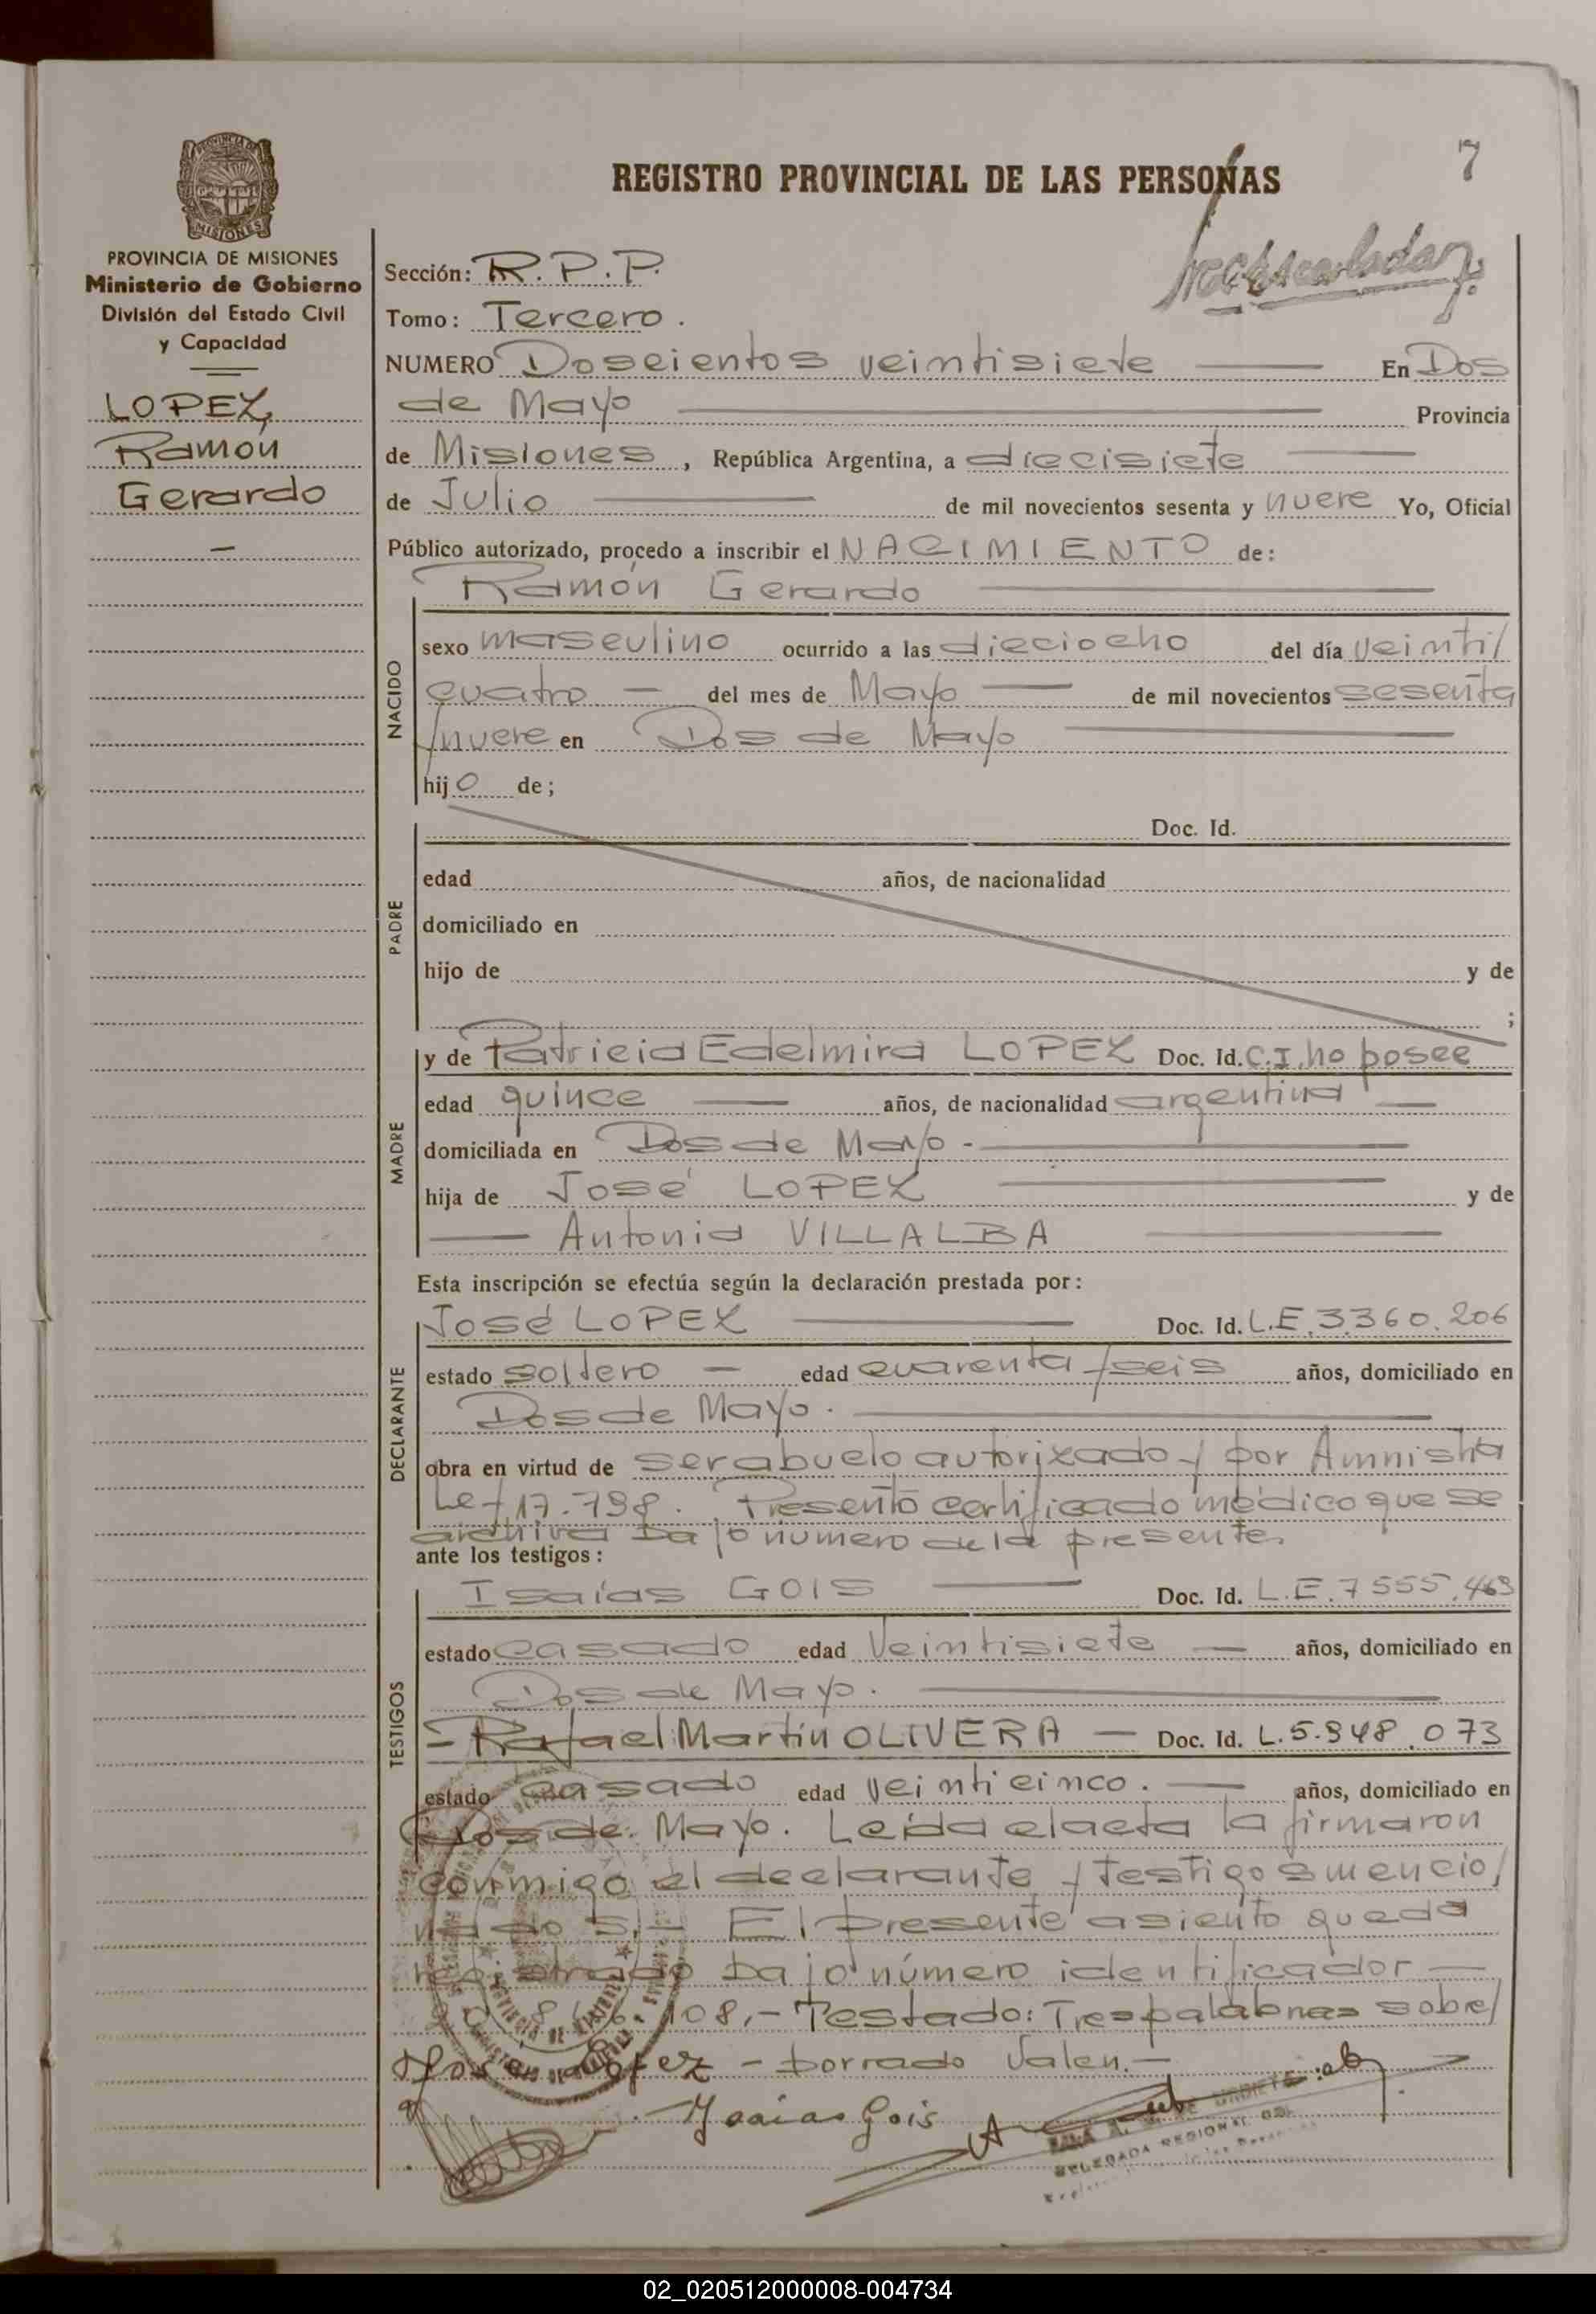 7
REGISTRO PROVINCIAL DE LAS PERSONAS
PROVINCIA DE MISIONES
Ministerio de Gobierno
División del Estado Civil
y Capacidad
LOPEZ,
Ramón
Gerardo
Sección: R.P.P.
Tomo: Tercero.
NUMERO Doscientos veintisiete En Dos
de Mayo Provincia
de Misiones, República Argentina, a diecisiete
de Julio de mil novecientos sesenta y nueve Yo, Oficial
Público autorizado, procedo a inscribir el NACIMIENTO de:
Ramón Gerardo
NACIDO
sexo masculino ocurrido a las dieciocho del día veinti/
cuatro - del mes de Mayo de mil novecientos sesenta
/nueve en Dos de Mayo
hijo de;
PADRE
Doc. Id.
edad años, de nacionalidad
domiciliado en
hijo de y de
;
MADRE
y de Patricia Edelmira LOPEZ Doc. Id. C.I. no posee
edad quince años, de nacionalidad argentina
domiciliada en Dos de Mayo.-
hija de José LOPEZ y de
Antonia VILLALBA
Esta inscripción se efectúa según la declaración prestada por:
DECLARANTE
José LOPEZ Doc. Id. L.E. 3.360.206
estado soltero - edad cuarenta y seis años, domiciliado en
Dos de Mayo.
obra en virtud de ser abuelo autorizado y por Amnistia
Ley 17.798. Presentó certificado médico que se
archiva bajo número de la presente.
ante los testigos:
TESTIGOS
Isaías GOIS Doc. Id. L.E. 7555.463
estado casado edad Veintisiete - años, domiciliado en
Dos de Mayo.
- Rafael Martín OLIVERA - Doc. Id. L.5.948.073
estado casado edad veinticinco. - años, domiciliado en
Dos de Mayo. Leída el acta la firmaron
conmigo el declarante y testigos mencio/
nados.- El presente asiento queda
registrado bajo número identificador -
108.- Testado: Tres palabras sobre/
José Lopez - borrado Valen.-
Isaias Gois
DELEGADA REGIONAL
02_020512000008-004734